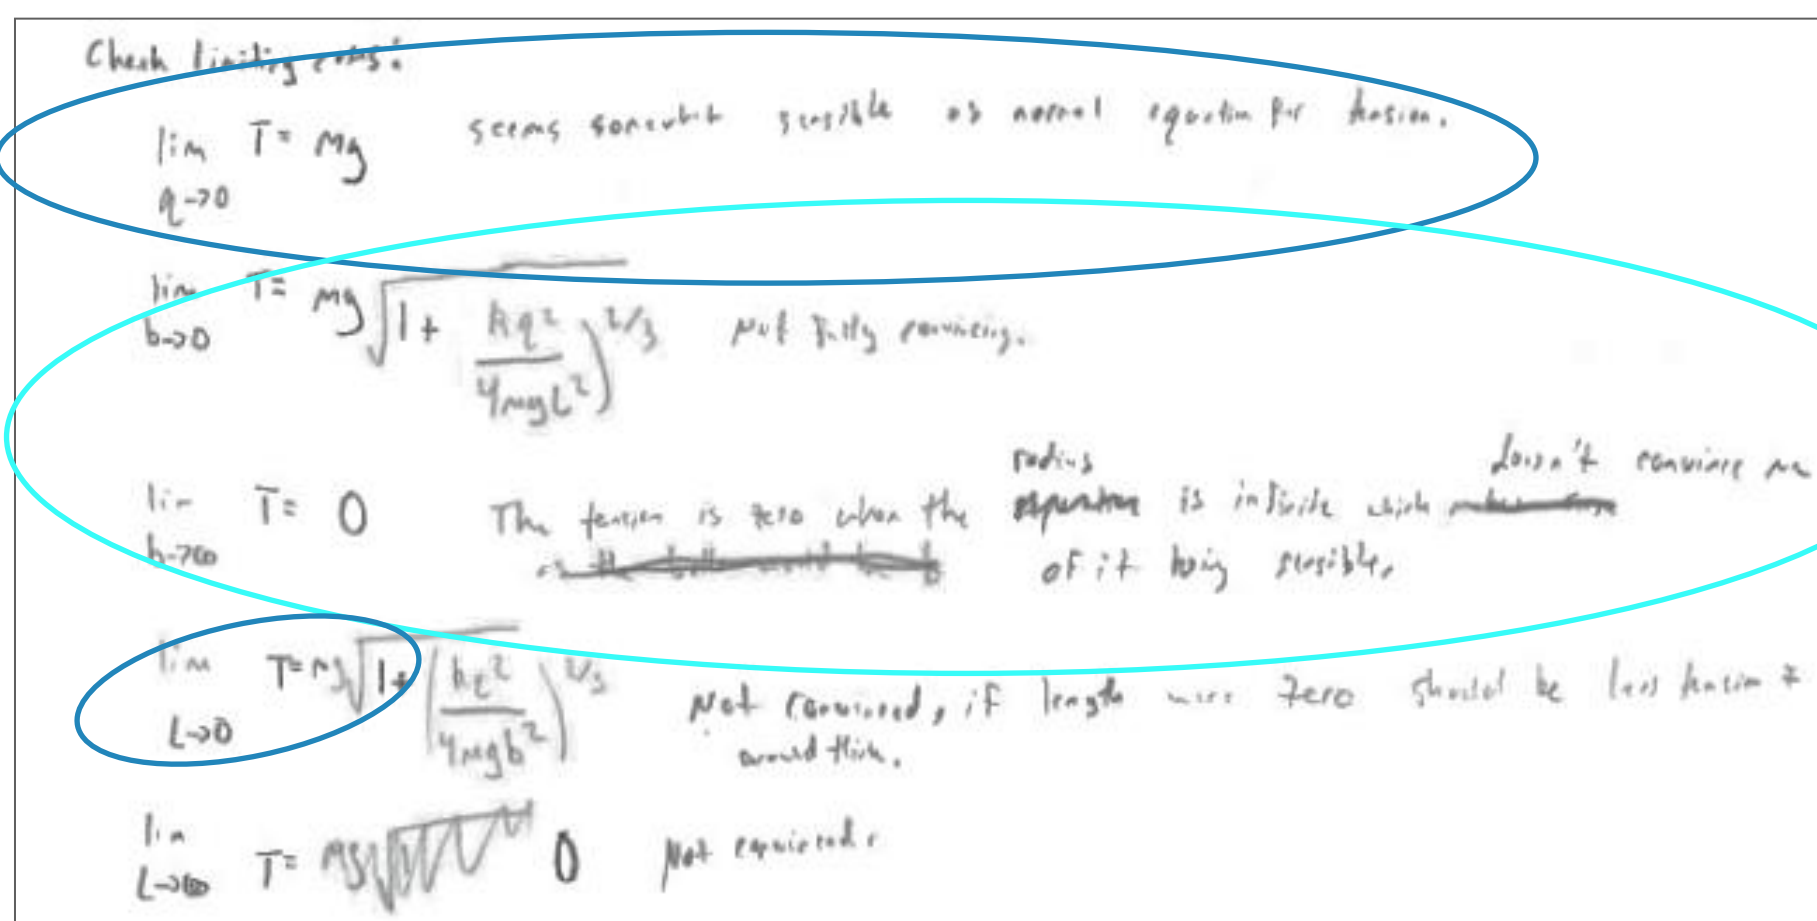 Check limiting cases:
lim T = mg seems somewhat sensible as normal equation for tension.
q→0
lim T = mg √1 + kq² / 4mgL² )^2/3 Not fully convincing.
b→0
lim T = 0 The tension is zero when the radius is infinite which doesn't convince me
b→∞ of it being sensible.
lim T = mg √1 + ( kq² / 4mgb² )^2/3 Not convinced, if length were zero should be less tension I
L→0 would think.
lim T = mg 0 Not convinced.
L→∞